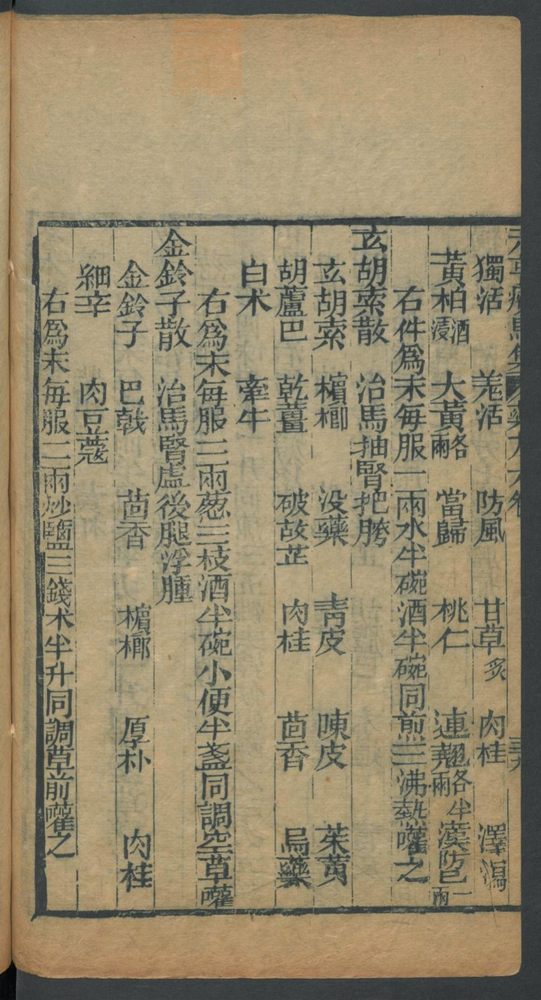 獨活 羗活 防風 甘草炙 肉桂 澤瀉
黃柏酒浸 大黃各兩 當歸 桃仁 連翹各半兩 漢防已一兩
右件爲末每服一兩水半碗酒半碗同前三沸熱嚾之
玄胡索散 治馬抽腎把胯
玄胡索 檳榔 没藥 青皮 陳皮 茱萸
胡蘆巴 乾薑 破故芷 肉桂 茴香 烏藥
白术 牽牛
右爲末每服三兩葱三枝酒半碗小便半盞同調空草嚾
金鈴子散 治馬腎虛後腿浮腫
金鈴子 巴戟 茴香 檳榔 厚朴 肉桂
細辛 肉豆蔻
右爲末每服二兩炒鹽三錢水半升同調草前嚾之